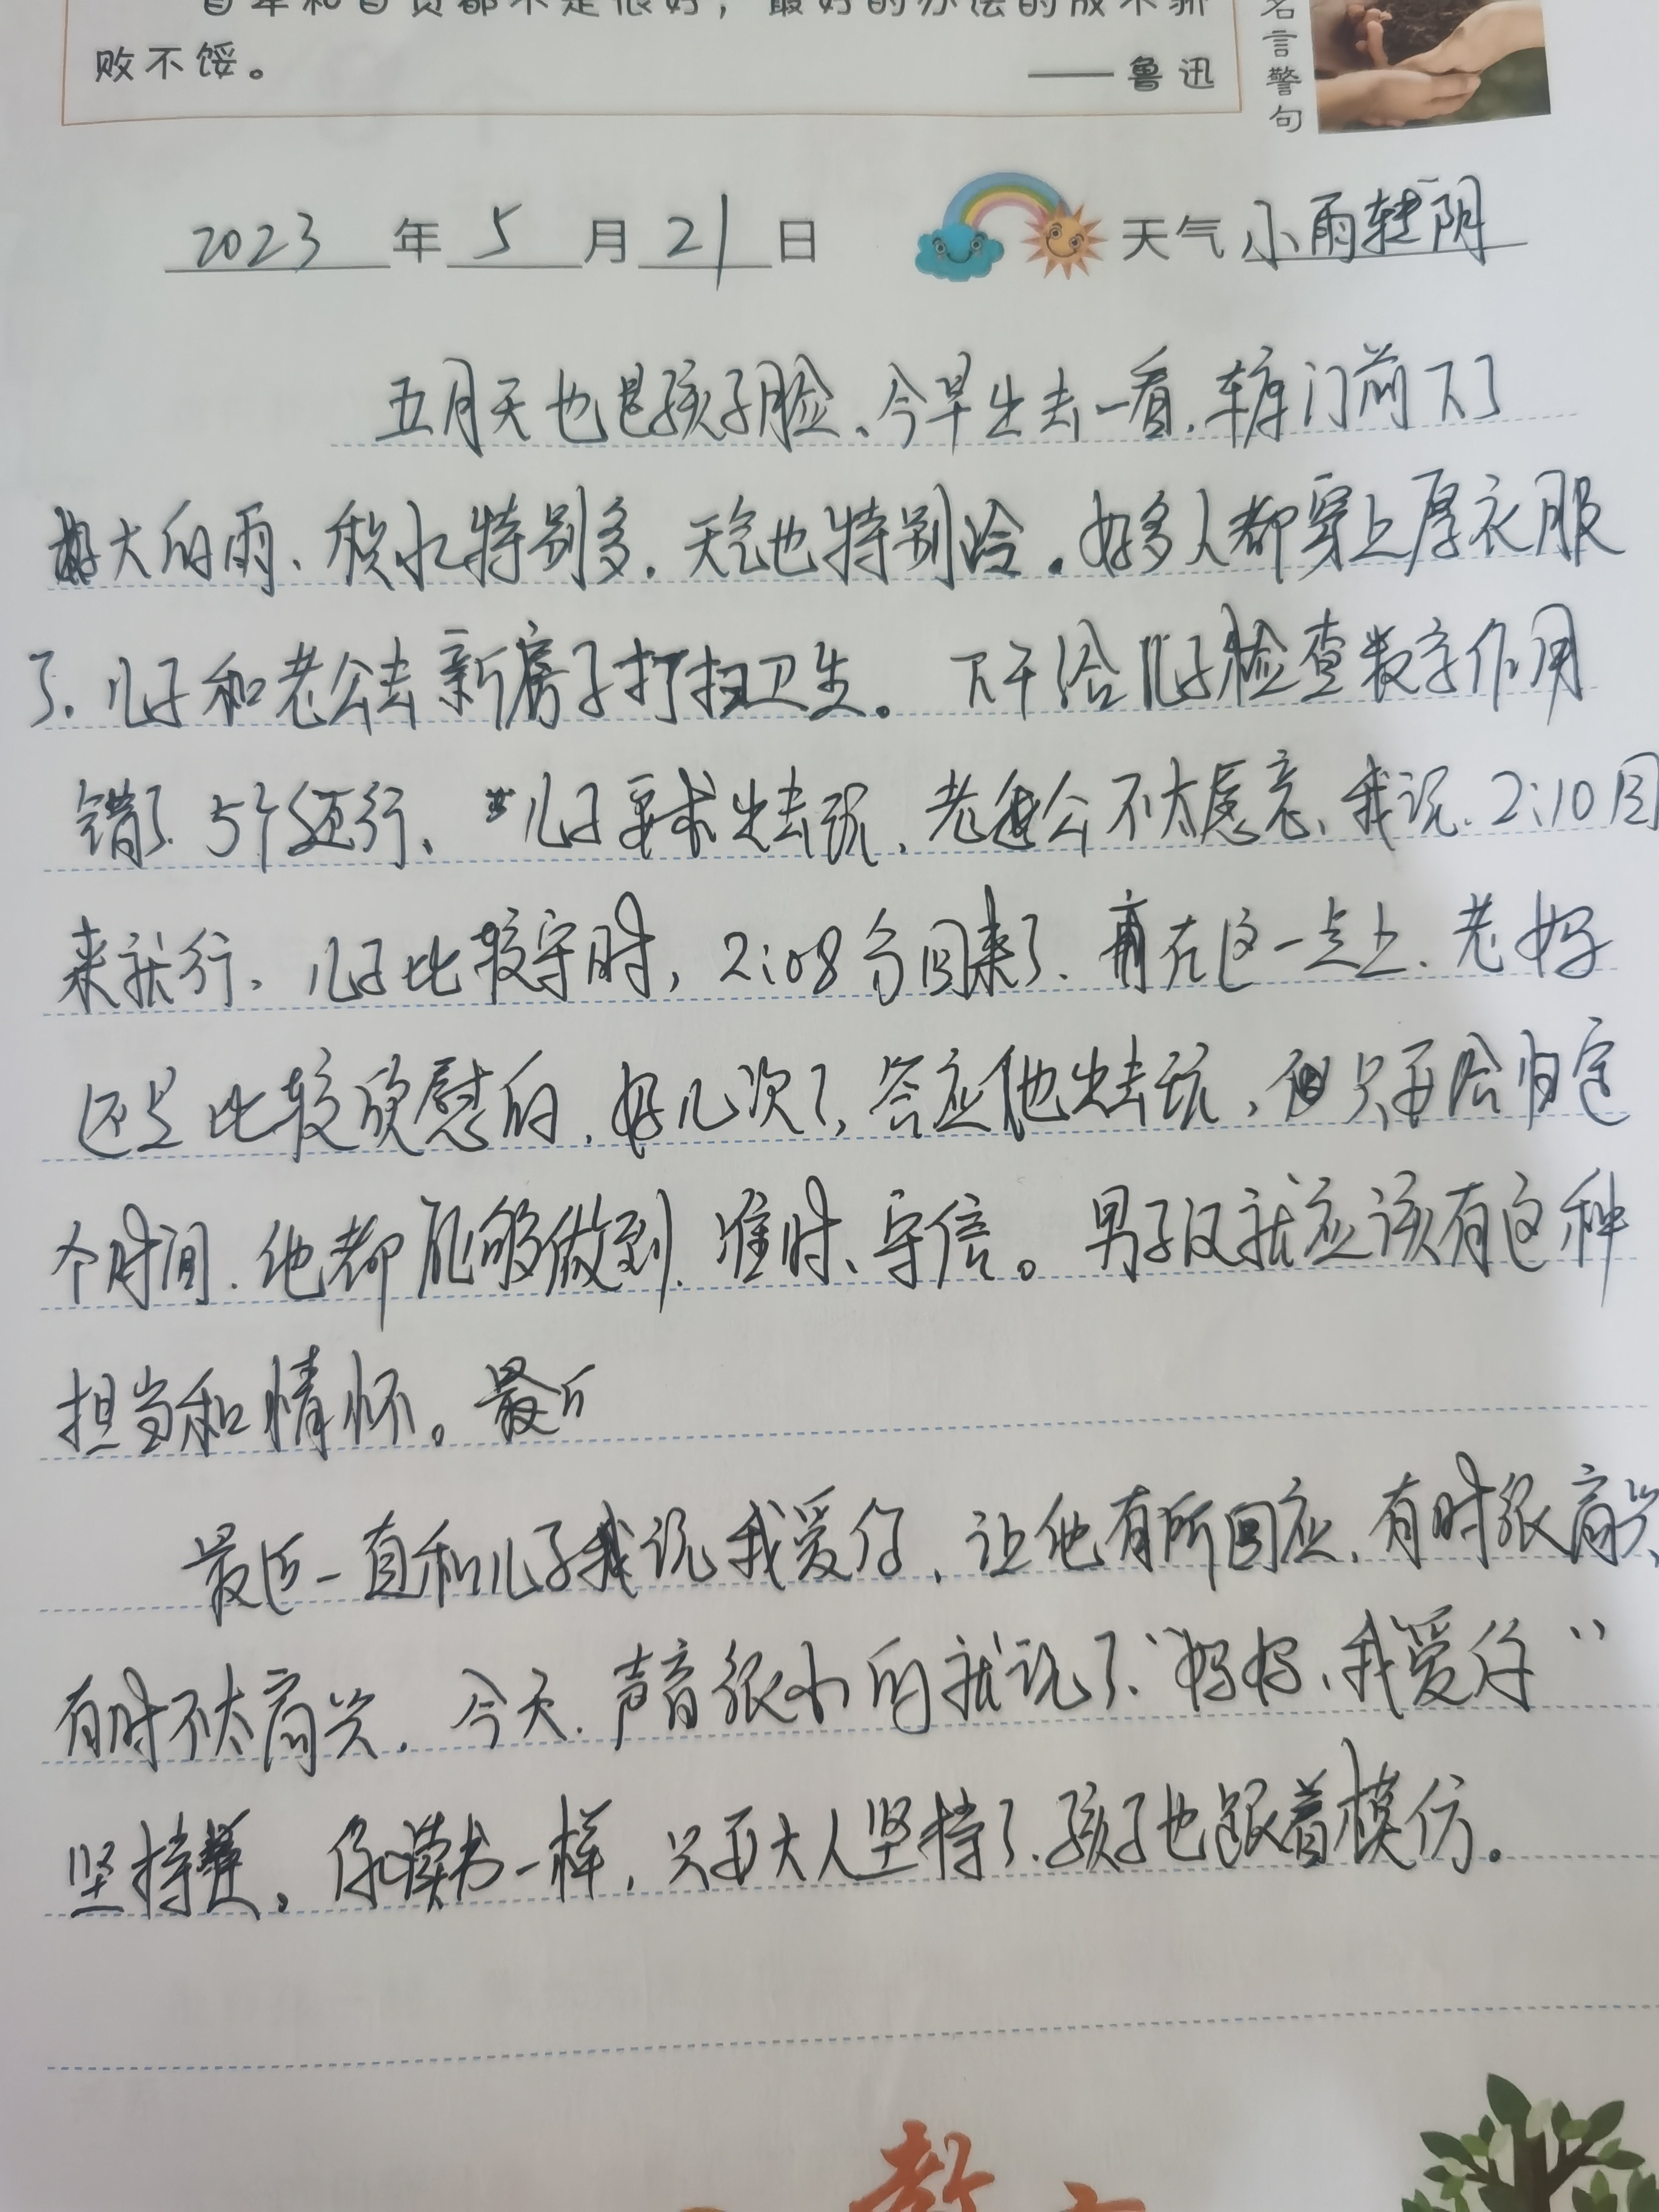 败不馁。 ——鲁迅
名言警句
2023年5月21日 天气小雨转阴
五月天也是孩子脸、今早出去一看,车库门前下了
好大的雨、积水特别多.天气也特别冷。好多人都穿上厚衣服
了.儿子和老公去新房子打扫卫生。下午给儿子检查数字作用
错了5个还行、儿子要求出去玩,老公不太愿意、我说.2:10回
来就行.儿子比较守时,2:08分回来了.在这一点上.老妈
还是比较欣慰的.好几次了,答应他出去玩,但只要给归定
个时间.他都能够做到.准时、守信。男子汉就应该有这种
担当和情怀。最近
最近一直和儿子说我爱你,让他有所回应.有时很高兴、
有时不太高兴.今天.声音很小的就说了."妈妈、我爱你"
坚持。和读书一样,只要大人坚持了.孩子也跟着模仿。
教